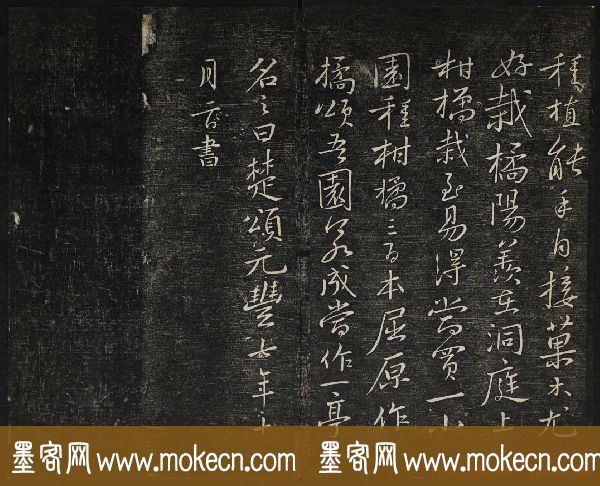 種植能手自接菓木尤
好栽橘陽羨在洞庭上
柑橘栽至易得當買一小
園種柑橘三百本屈原作
橘頌吾園若成當作一亭
名之曰楚頌元豐七年十
月二日書
墨客网 www.mokecn.com 墨客网 www.mokecn.com